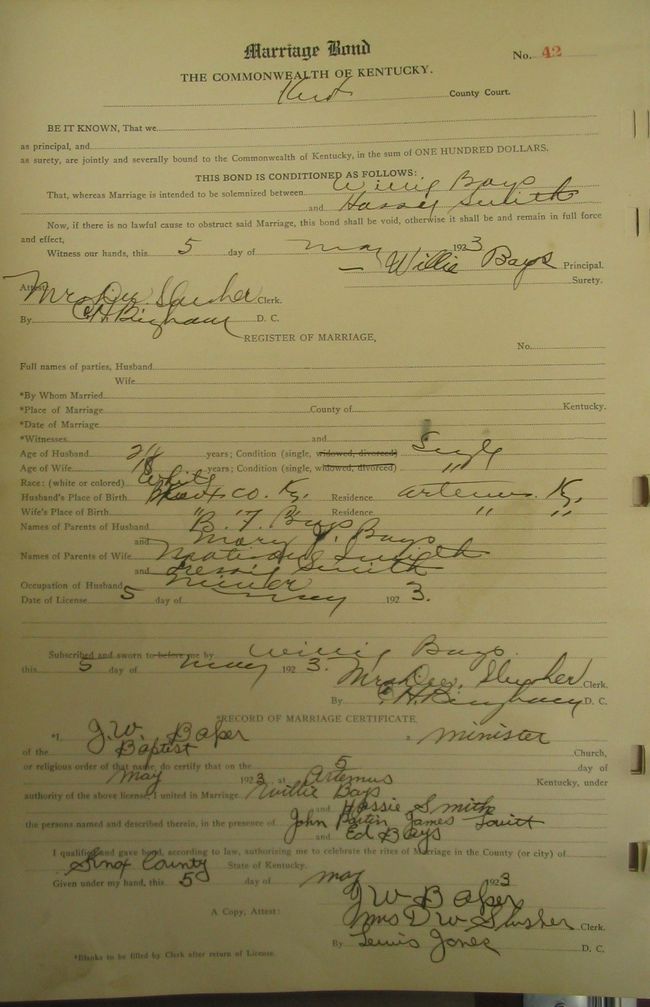 Marriage Bond
No. 42
THE COMMONWEALTH OF KENTUCKY.
County Court.
BE IT KNOWN, That we
as principal, and
as surety, are jointly and severally bound to the Commonwealth of Kentucky, in the sum of ONE HUNDRED DOLLARS.
THIS BOND IS CONDITIONED AS FOLLOWS:
That, whereas Marriage is intended to be solemnized between Willie Bays
and Hassey Smith
Now, if there is no lawful cause to obstruct said Marriage, this bond shall be void, otherwise it shall be and remain in full force
and effect,
Witness our hands, this 5 day of May 1923
Willie Bays Principal.
Surety.
Attest
Mrs Dw. Slusher Clerk.
By C.H. Bingham D. C.
REGISTER OF MARRIAGE,
No.
Full names of parties, Husband
Wife
*By Whom Married
*Place of Marriage County of Kentucky.
*Date of Marriage
*Witnesses and
Age of Husband years; Condition (single, widowed, divorced) Single
Age of Wife 18 years; Condition (single, widowed, divorced) "
Race: (white or colored) White
Husband's Place of Birth Knox Co. Ky. Residence Artemus Ky,
Wife's Place of Birth " " " Residence " "
Names of Parents of Husband B. F. Bays
and Mary J. Bays
Names of Parents of Wife Smith
and Smith
Occupation of Husband Miner
Date of License 5 day of May 1923.
Subscribed and sworn to before me by Willie Bays.
this 5 day of May 1923.
Mrs Dw. Slusher Clerk.
By C.H. Bingham D. C.
*RECORD OF MARRIAGE CERTIFICATE,
*I J.W. Baker a minister
of the Baptist Church,
or religious order of that name, do certify that on the 5 day of
May 1923 at Artemus Kentucky, under
authority of the above license, I united in Marriage Willie Bays
and Hassie Smith
the persons named and described therein, in the presence of John Partin James
and Ed Bays
I qualified and gave bond, according to law, authorizing me to celebrate the rites of Marriage in the County (or city) of
Knox County State of Kentucky.
Given under my hand, this 5 day of May 1923
J W Baker
A Copy, Attest: Mrs D W Slusher Clerk.
By Lewis Jones D. C.
*Blanks to be filled by Clerk after return of License.